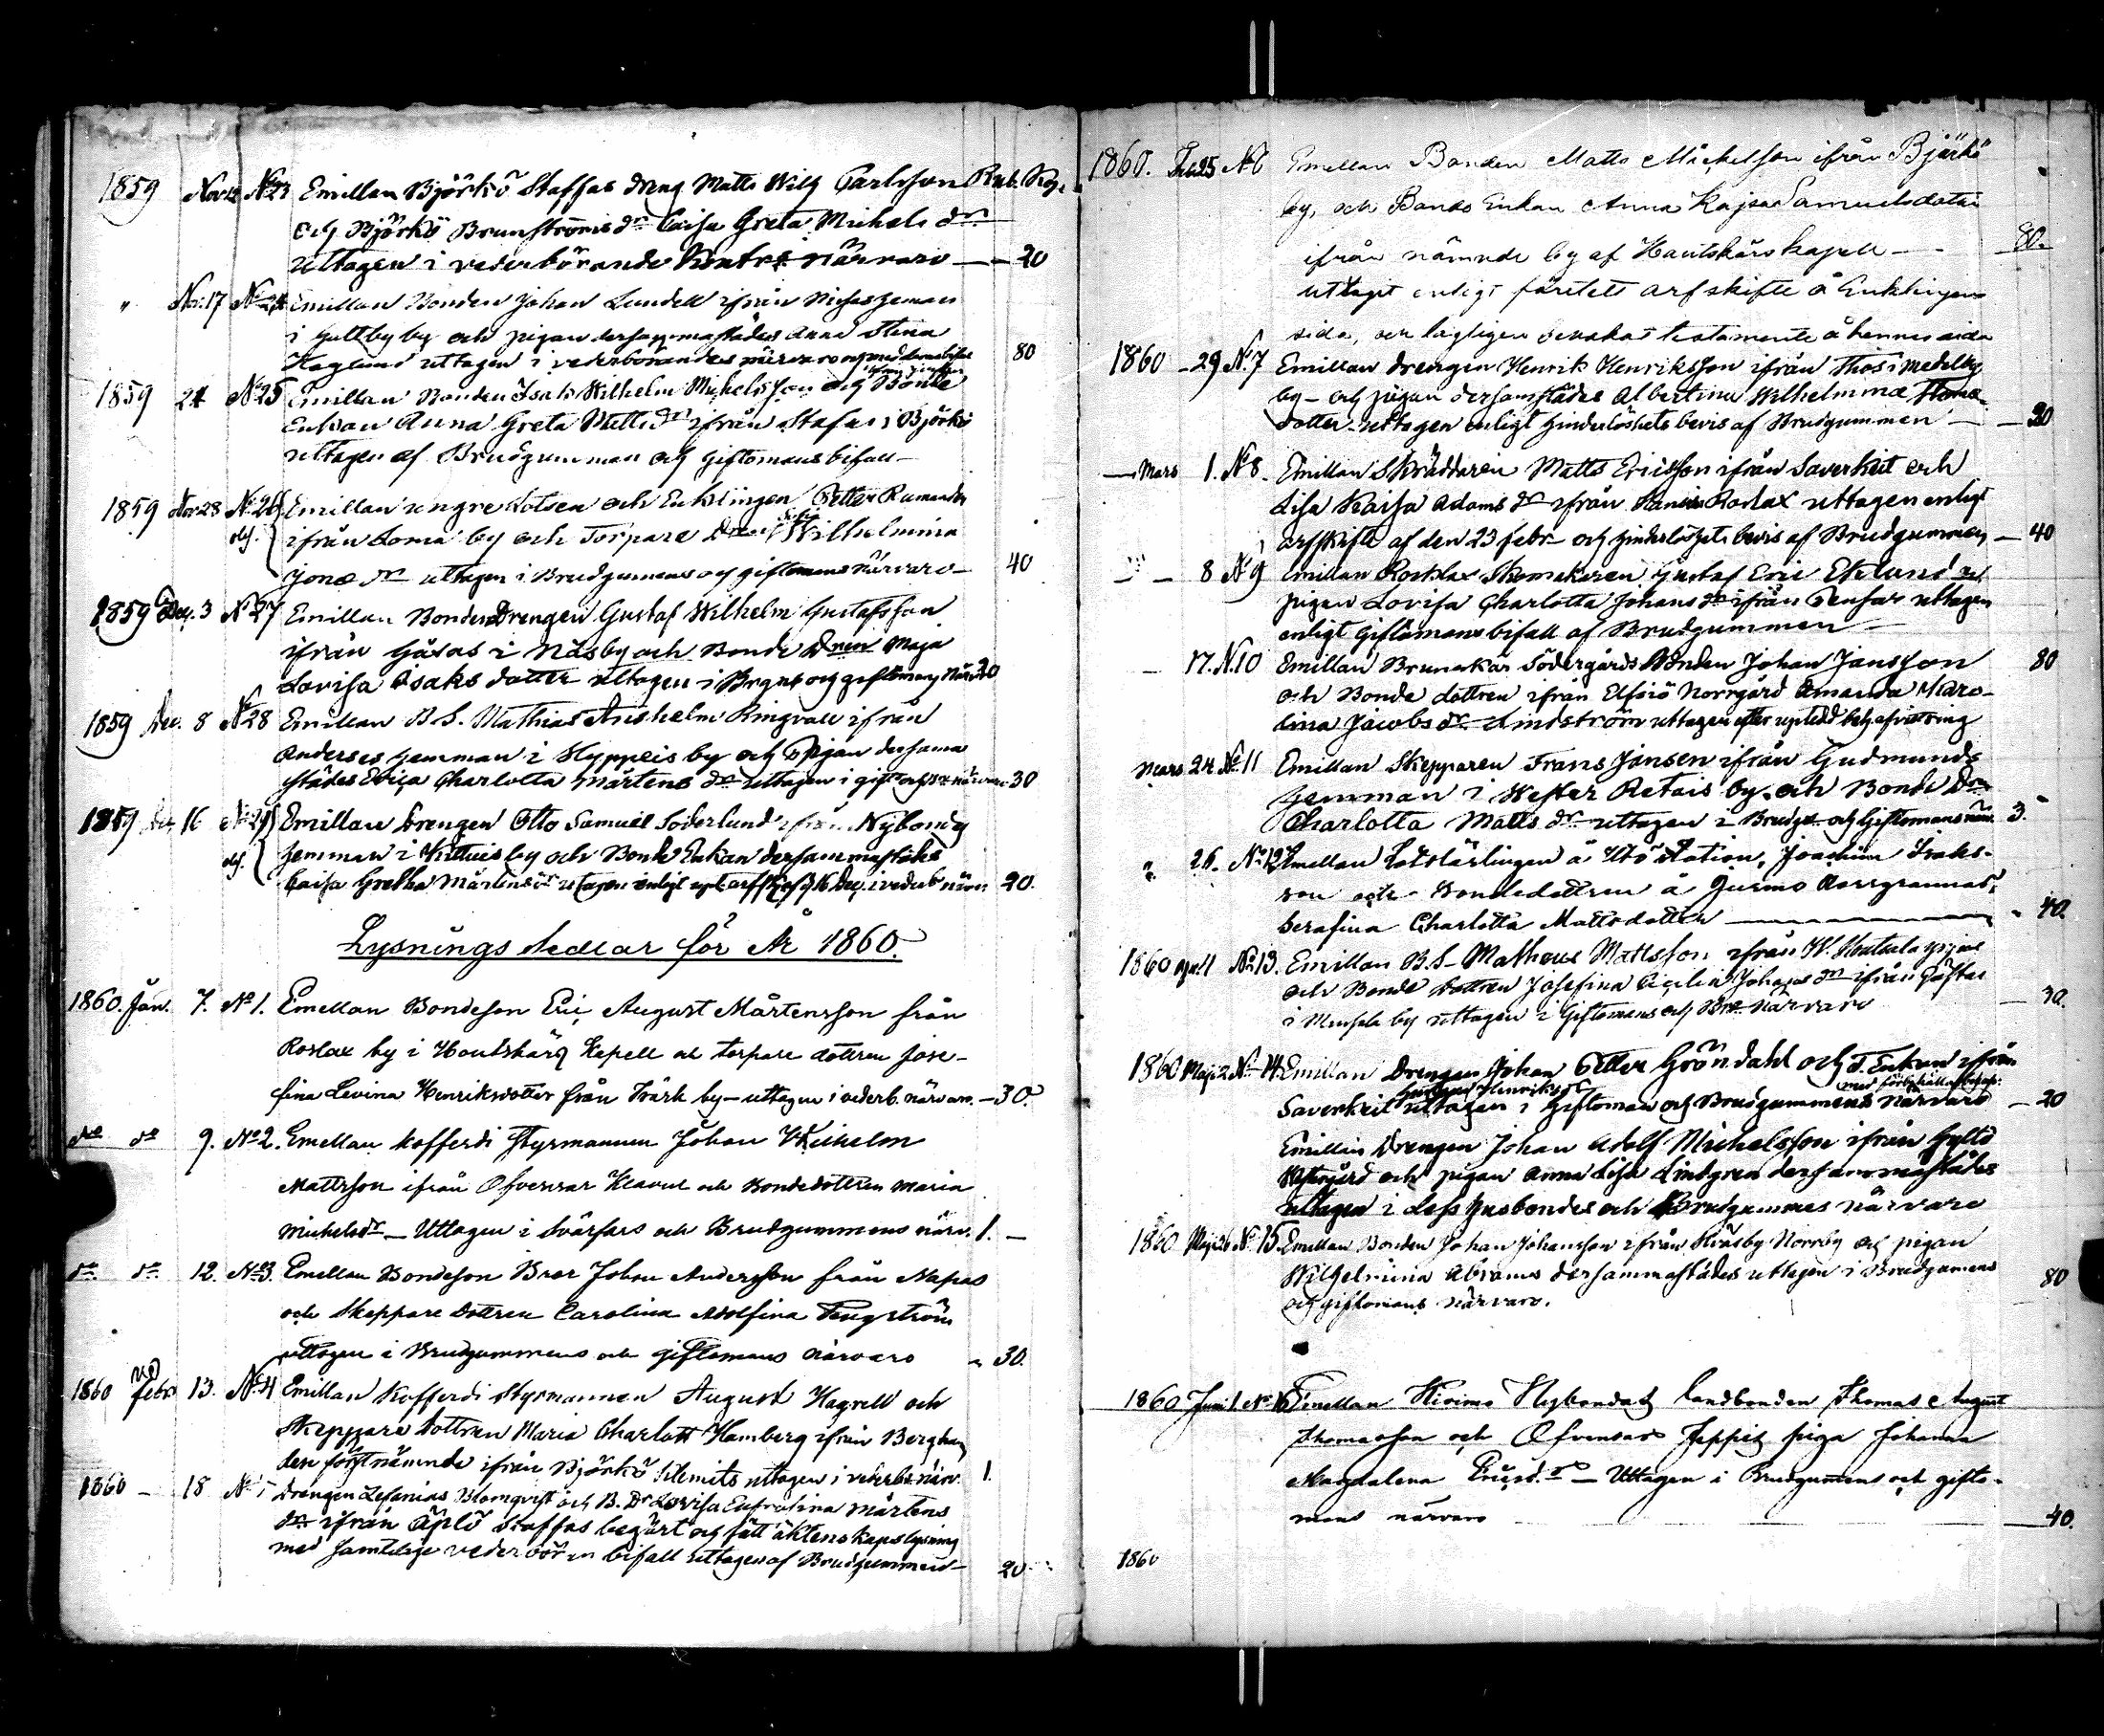 1859 Nov 12 No 23 Emillan Björkö Staffas dreng Matts Wilh Carlsson Rub. Kop.
och Björkö Brunströms dr Caisa Greta Michels dr
uttagen i vederbörande närvaro — 20
" Nov. 17 No 24 Emillan Bonden Johan Lundell ifrån hemman
i by och pigan dersammastädes Anna Stina
Haglund uttagen i vederbörandes närvaro 80
1859 24 No 25 Emillan Bonden Isak Wilhelm Michelsson och Bonde
Enkan Anna Greta Matts dr ifrån Stafas i Björkö
uttagen af Brudgumman och giftomans bifall —
1859 Nov 28 No 26 Emillan yngre Lotsen och Enklingen Petter
ifrån Loma by och Torpare Wilhelmina
Jonæ dr uttagen i Brudgumens och giftomans närvaro — 40
1859 Dec. 3 No 27 Emillan Bonde Drengen Gustaf Wilhelm Gustafsson
ifrån Gåsas i Näsby och Bonde Dren Maja
Lovisa Isaks dotter uttagen i och giftomans 20
1859 Dec. 8 No 28 Emillan B. S. Mathias Anshelm Ringvall ifrån
Anderses hemman i Hyppeis by och Pigan dersamma
städes Charlotta Mårtens dr uttagen i 30
1859 Dec 16 No 29 Emillan Drengen Otto Samuel Söderlund ifrån Nybonda
hemman i Kittuis by och Bonde Enkan dersammastädes
Caisa Gretha Mårtens dr uttagen enligt arfskifte 16 Dec. i vederb närv 20.
Lysnings Sedlar för År 1860.
1860. Jan. 7. No 1. Emellan Bondeson Eric August Mårtensson från
Roslax by i Houtskärs Kapell och torpare dottren Jose-
fina Levina Henriksdotter från Träsk by — uttagen i vederb. närvaro. — 30.
do do 9. No 2. Emellan kofferdi Styrmannen Johan Wilhelm
Mattsson ifrån Ofvensar Klavus och Bondedottren Maria
Michelsdr — Uttagen i Svärfars och Brudgummens närv. 1. —
do do 12. No 3. Emellan Bondeson Bror Johan Andersson från Napas
och Skeppare Dottren Carolina Adolfina Fengström
uttagen i Brudgummens och giftomans närvaro " 30.
1860 febr 13. No 4 Emillan Kofferdi Styrmannen August Hagrell och
Skeppare dottren Maria Charlott Hamberg ifrån Berghan
den förstnämnde ifrån Björkö Klemits uttagen i vederb. när. 1.
1860 — 18 No 5 Drengen Zefanias Blomqvist och B. Dr Lovisa Eufrosina Mårtens
dr ifrån Äplö Staffas begärt och fått äktenskaps lysning
med samtelige vederbörn bifall uttagen af Brudgummen — 20
1860. Feb. 25 No 6 Emellan Bonden Matts Mickelson ifrån Björkö
by, och Bonds Enkan Anna Kajsa Samuelsdotter
ifrån nämnde by af Houtskärs kapell — 80.
uttaget enligt företett arfskifte å Enklingens
sida, och lagligen testamente å hennes sida
1860 — 29 No 7 Emillan drengen Henrik Henriksson ifrån Thois i Medelby
by — och pigan dersamstädes Albertina Wilhelmina Thoma-
dotter uttagen enligt hinderlöshets bevis af Brudgummen — 20
— Mars 1. No 8. Emillan Skräddaren Matts Ericsson ifrån Saverkeit och
Lisa Kaisa Adams dr ifrån Roslax uttagen enligt
arfskifte af den 23 febr och hinderlöshets bevis af Brudgummen — 40
— 8 No 9 Emillan Roslax Skomakaren Gustaf Eric Eklund och
pigan Lovisa Charlotta Johans dr ifrån Pensar uttagen
enligt Giftomans bifall af Brudgummen —
— 17. No 10 Emillan Brunskär Södergårds Bonden Johan Jansson 80
och Bonde dottren ifrån Elfsiö Norrgård Amanda Karo-
lina Jacobs dr Lindström uttagen efter
Mars 24 No 11 Emillan Skepparen Frans Jansen ifrån Gudmunds
hemman i Wester Retais by. och Bonde Dr
Charlotta Matts dr uttagen i Brudgs och Giftomans när. 3.
" 26. No 12 Emellan Lotslärlingen å Utö Station, Joachim Isaks-
son och Bondedottren å Jurmo Norrgrannas,
Serafina Charlotta Mattsdotter — " 40.
1860 April 1 No 13. Emillan B. S — Matheus Mattsson ifrån W.
och Bonde Dottren Josefina Cecilia Johans dr ifrån
i by uttagen i Giftomans och närvaro — 30.
1860 Maji 2 No 14 Emillan Drengen Johan Petter Gröndahl och T. Enkan ifrån
Henriks dr
Saverkeit uttagen i Giftomans och Brudgummens närvaro — 20
Emillan Drengen Johan Adolf Michelsson ifrån Gyltö
Westergård och pigan Anna Lisa Lindgren dersammastädes
uttagen i dess Husbondes och Brudgummes närvaro
1860 Maji 26 No 15. Emillan Bonden Johan Johansson ifrån Norrby och pigan
Wilhelmina Abrams dersammastädes uttagen i Brudgumens 80
och giftomans närvaro.
1860 Juni 1. No 16 Emellan Kivimo Nybondas landbonden Thomas August
Thomasson och Ofvensars Jeppis piga Johanna
Magdalena Ericsdr — Uttagen i Brudgumens och gifto-
mans närvaro — 40.
1860